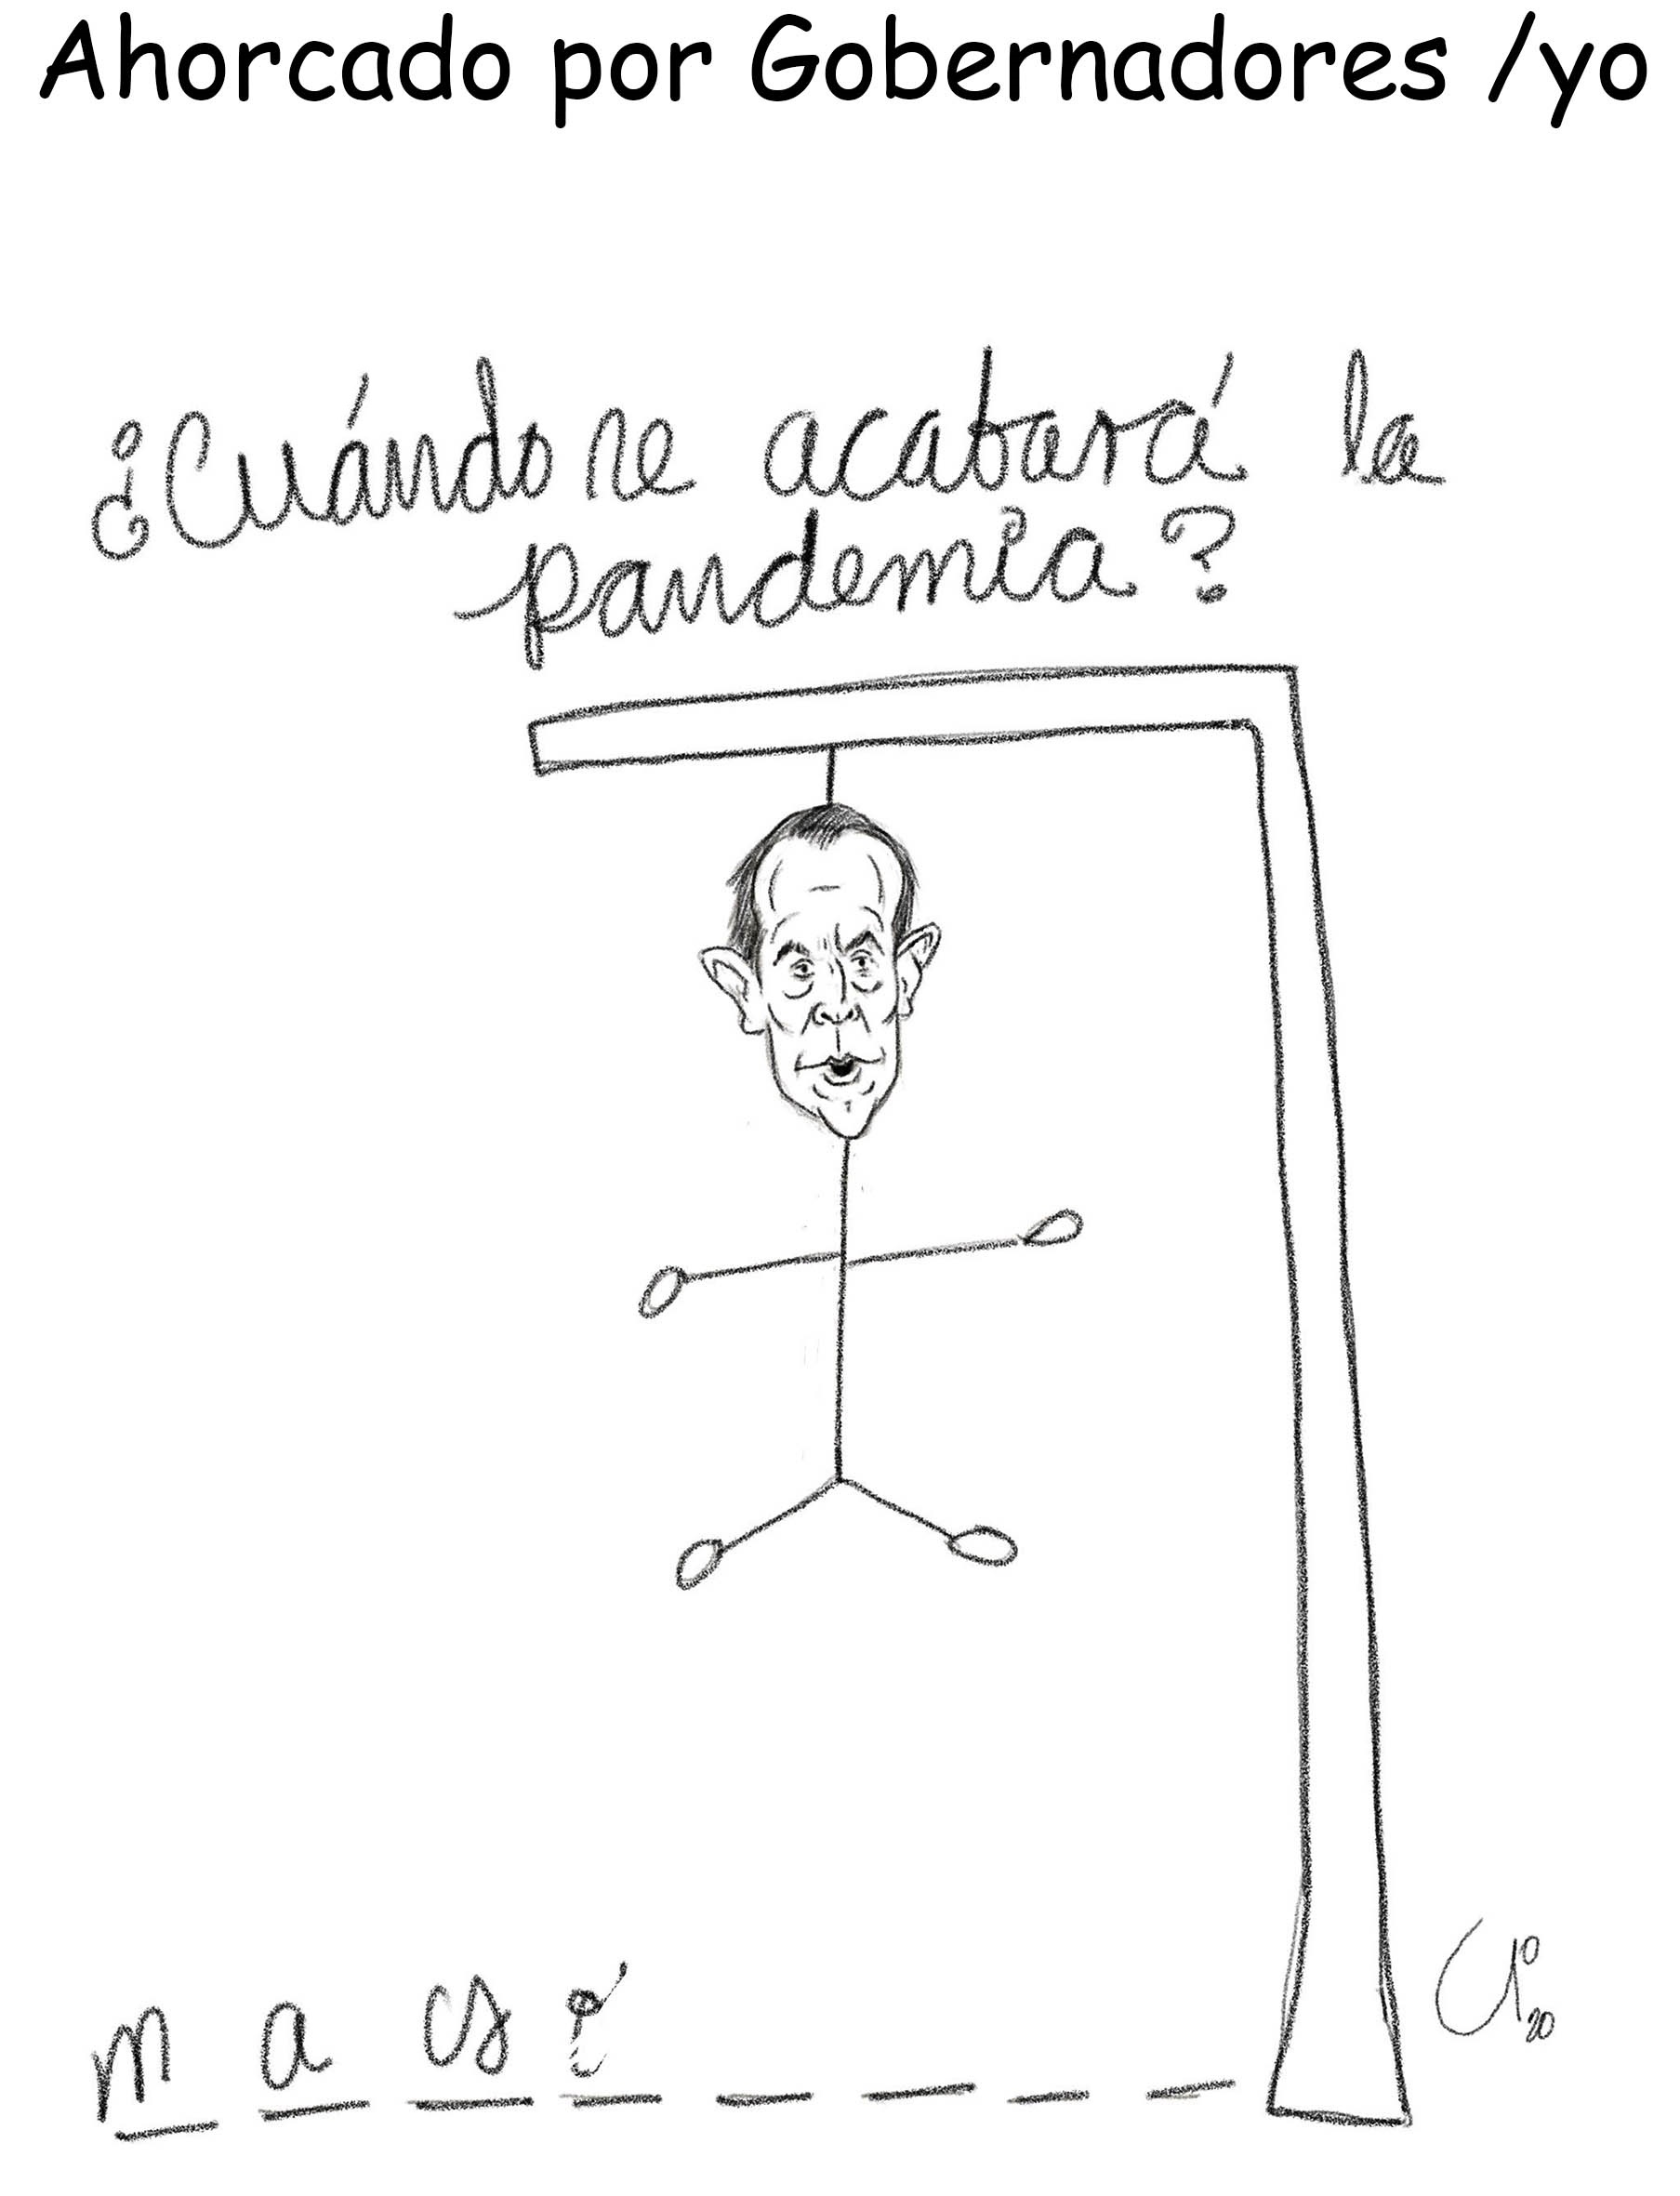 Ahorcado por Gobernadores /yo
¿Cuándo se acabará la
pandemia?
m a
20